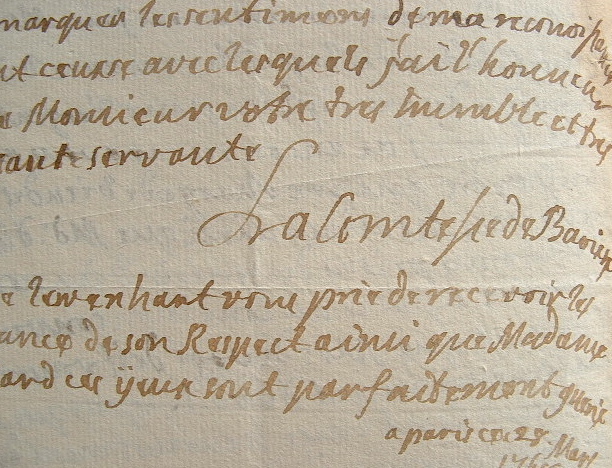 marquer les sentimens de ma reconoiss
ceux avec lesquels jai l'honneur
Monsieur votre tres humble et tres
servante
La Comtesse de Bavier
vous prie de recevoir les
de son Respect ainsi que Madame
ces yeux sont parfaitement gueris
a paris ce 28 Mars